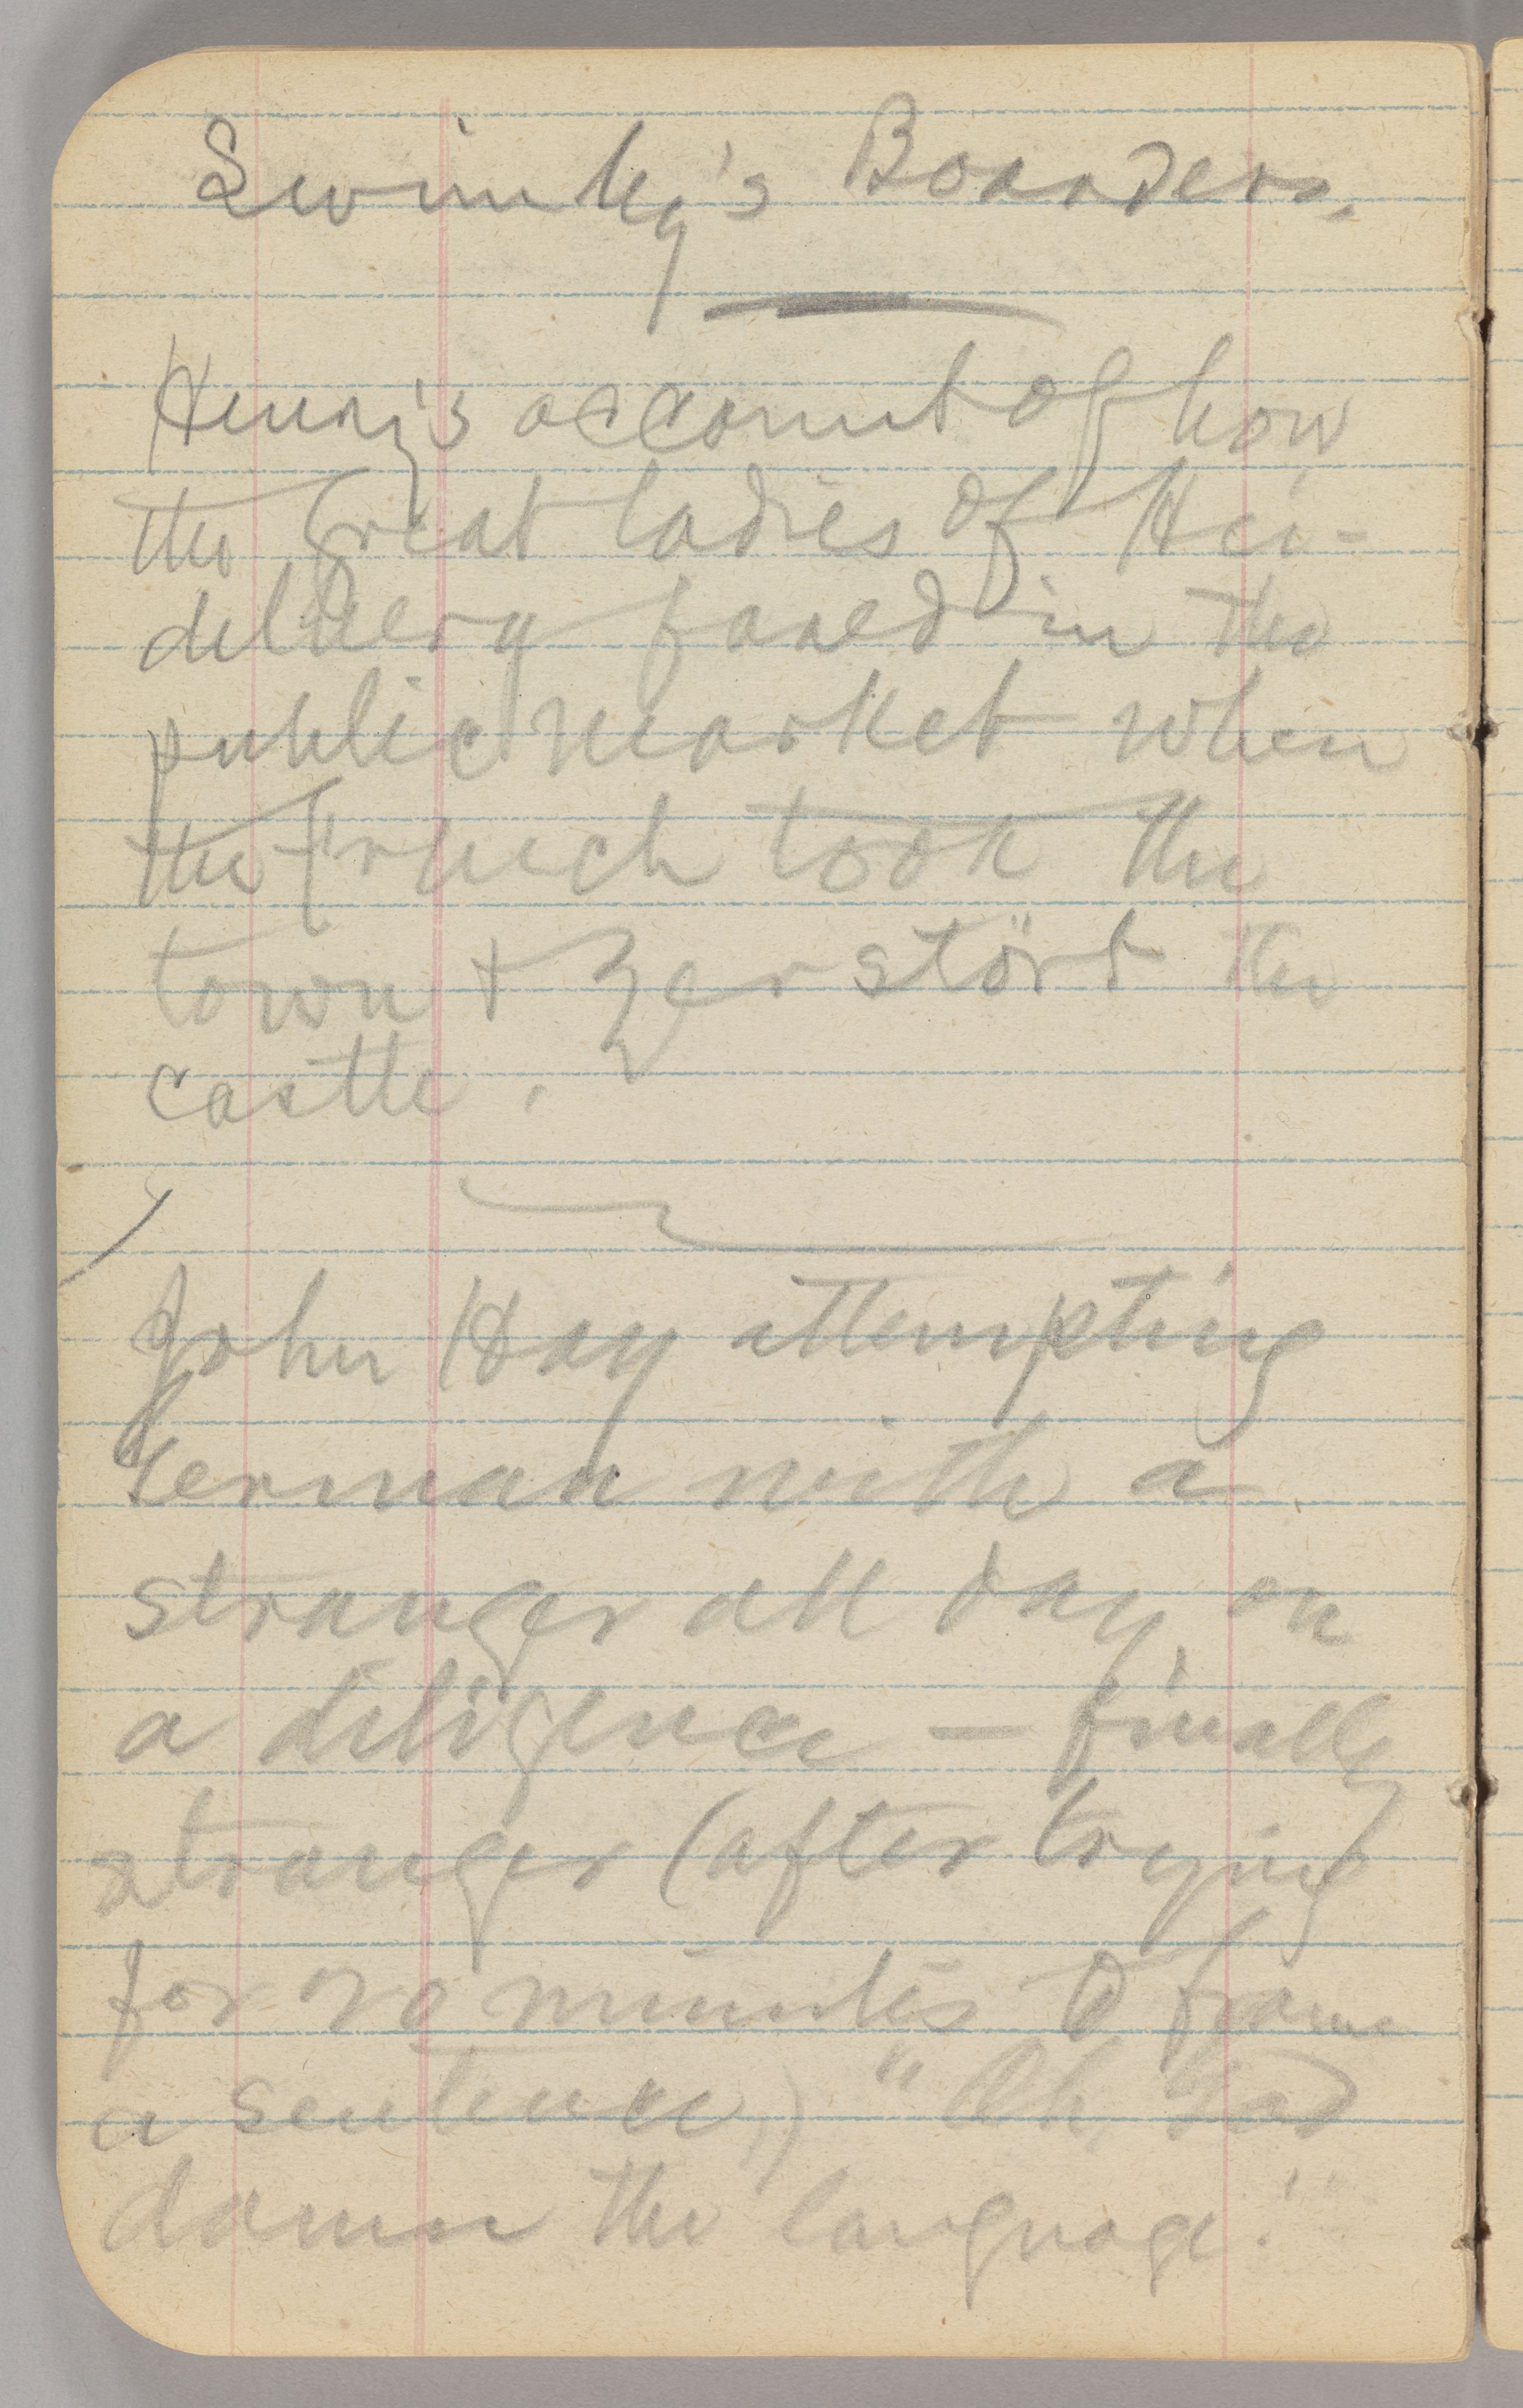 Swimley's Boarders.
Henry's account of how
the great ladies of Hei-
delberg fared in the
public market when
the French took the
town & zerstört the
castle.
John Hay attempting
German with a
stranger all day on
a diligence — finally
stranger (after trying
for 20 minutes to frame
a sentence,) "Oh, God
damn the language!"